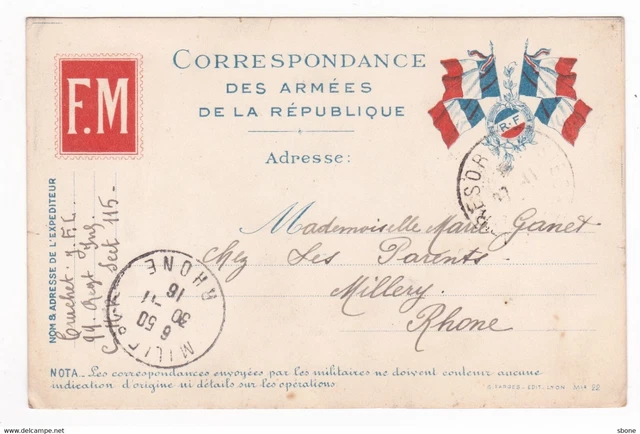 F.M
CORRESPONDANCE
DES ARMÉES
DE LA RÉPUBLIQUE
Adresse:
R.F
TRÉSOR
NOM & ADRESSE DE L'EXPÉDITEUR
Cruchet
99 Regt Inf.
Sect 115
Mademoiselle Marie Ganet
Chez Ses Parents
Millery
Rhone
RHONE
16
30 -11
6 50
NOTA_Les correspondances envoyées par les militaires ne doivent contenir aucune
indication d'origine ni détails sur les opérations.
EDIT. LYON
sbone
www.delcampe.net